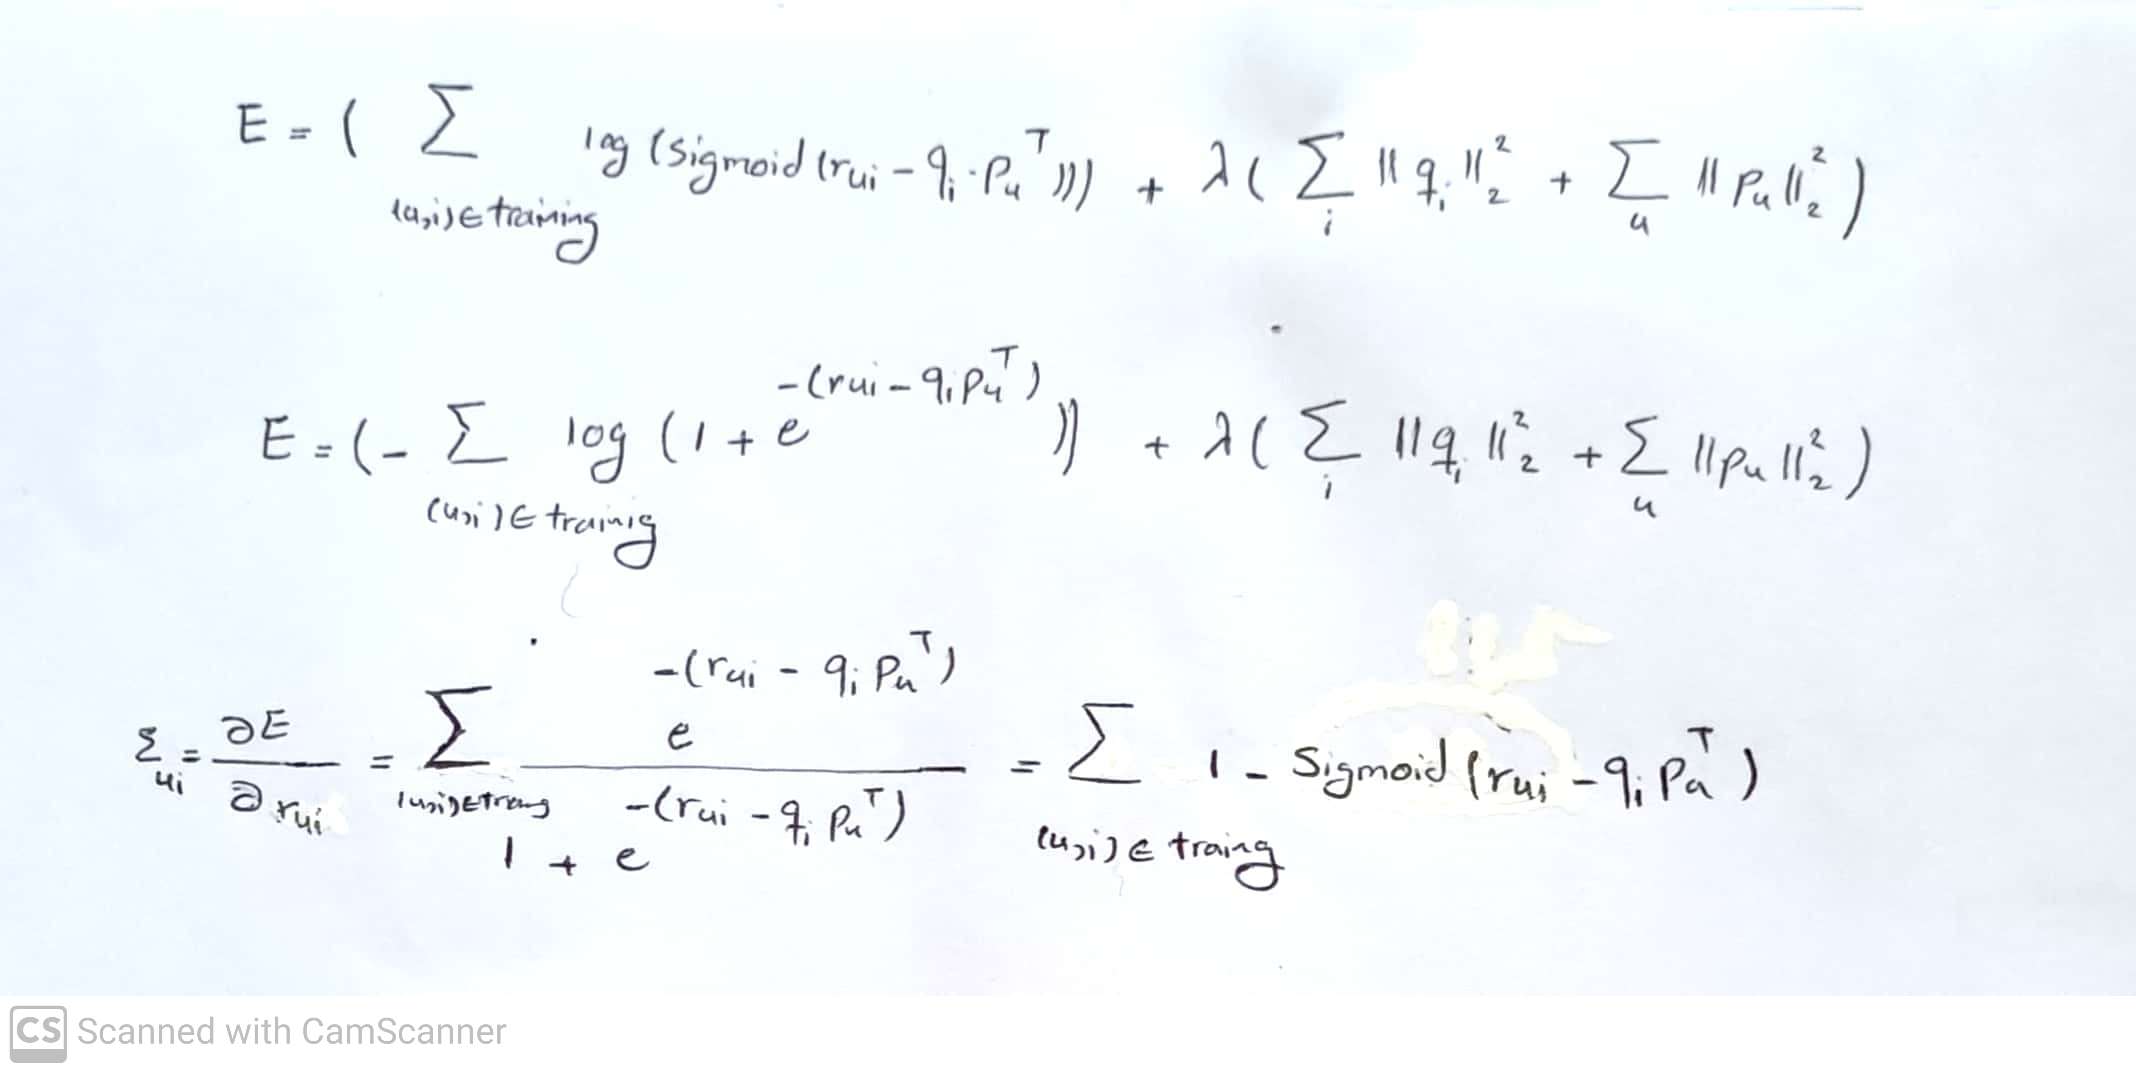 E = ( Σ_{(u,i)∈ training} log (sigmoid (rui - qi · Pu^T))) + λ( Σ_i ||qi||₂² + Σ_u ||Pu||₂² )
E = (- Σ_{(u,i)∈ trainig} log (1 + e^{-(rui - qi Pu^T)})) + λ( Σ_i ||qi||₂² + Σ_u ||Pu||₂² )
ε_ui = ∂E / ∂rui = Σ_{(u,i)∈ traing} e^{-(rui - qi Pu^T)} / 1 + e^{-(rui - qi Pu^T)} = Σ_{(u,i)∈ traing} 1 - Sigmoid (rui - qi Pu^T)
CS Scanned with CamScanner